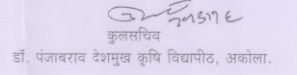 कुलसचिव
डॉ. पंजाबराव देशमुख कृषि विद्यापीठ, अकोला.